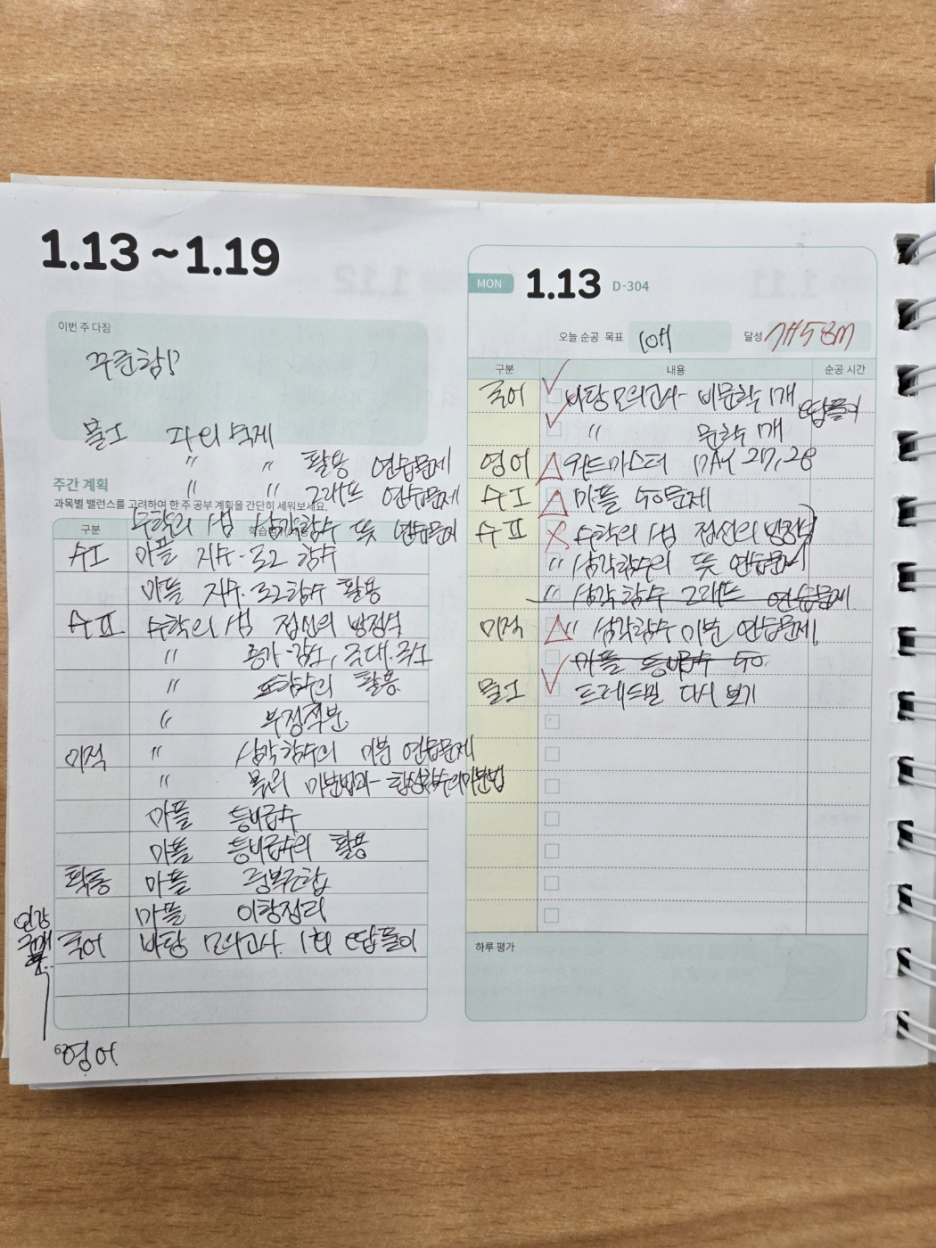 1.13 ~ 1.19
이번 주 다짐
꾸준함!?
물I
" " 활용 연습문제
" " 그래프 연습문제
주간 계획
과목별 밸런스를 고려하여 한 주 공부 계획을 간단히 세워보세요.
수학의 샘 삼각함수 뜻 연습문제
구분
수I 마플 지수·로그 함수
마플 지수·로그함수 활용
수II 수학의 샘 접선의 방정식
" 증가·감소, 극대·극소
" 도함수의 활용
" 부정적분
미적 " 삼각함수의 미분 연습문제
" 몫의 미분법과 합성함수의 미분법
마플 등비급수
마플 등비급수의 활용
확통 마플 중복조합
마플 이항정리
인강
국어 바탕 모의고사 1회 오답풀이
영어
MON 1.13 D-304
오늘 순공 목표 10h 달성 7h 58M
구분 내용 순공 시간
국어 바탕 모의고사 - 비문학 1개 오답풀이
" 문학 1개
영어 워드마스터 DAY 27, 28
수I 마플 50문제
수II 수학의 샘 접선의 방정식
" 삼각함수의 뜻 연습문제
" 삼각함수 그래프 연습문제
미적 " 삼각함수 미분 연습문제
마플 등비급수 50
물I 다시 보기
하루 평가